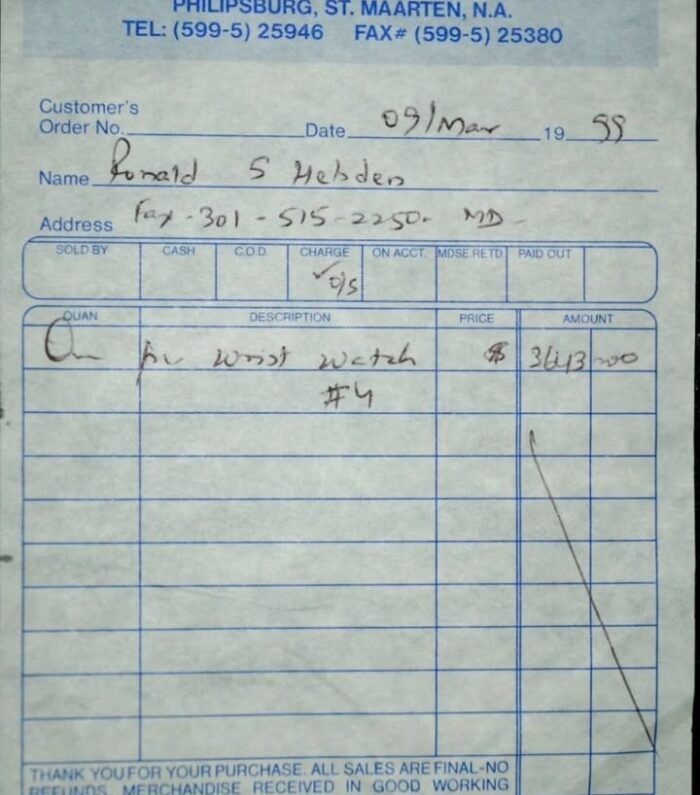 PHILIPSBURG, ST. MAARTEN, N.A.
TEL: (599-5) 25946 FAX# (599-5) 25380
Customer's
Order No. Date 09/Mar 19 99
Name Ronald S Hebden
Address Fax - 301 - 515 - 2250. MD -
SOLD BY CASH C.O.D. CHARGE ON ACCT. MDSE RETD. PAID OUT
✓
QUAN DESCRIPTION PRICE AMOUNT
On pc wrist watch $ 3643 00
#4
THANK YOU FOR YOUR PURCHASE. ALL SALES ARE FINAL-NO
REFUNDS. MERCHANDISE RECEIVED IN GOOD WORKING